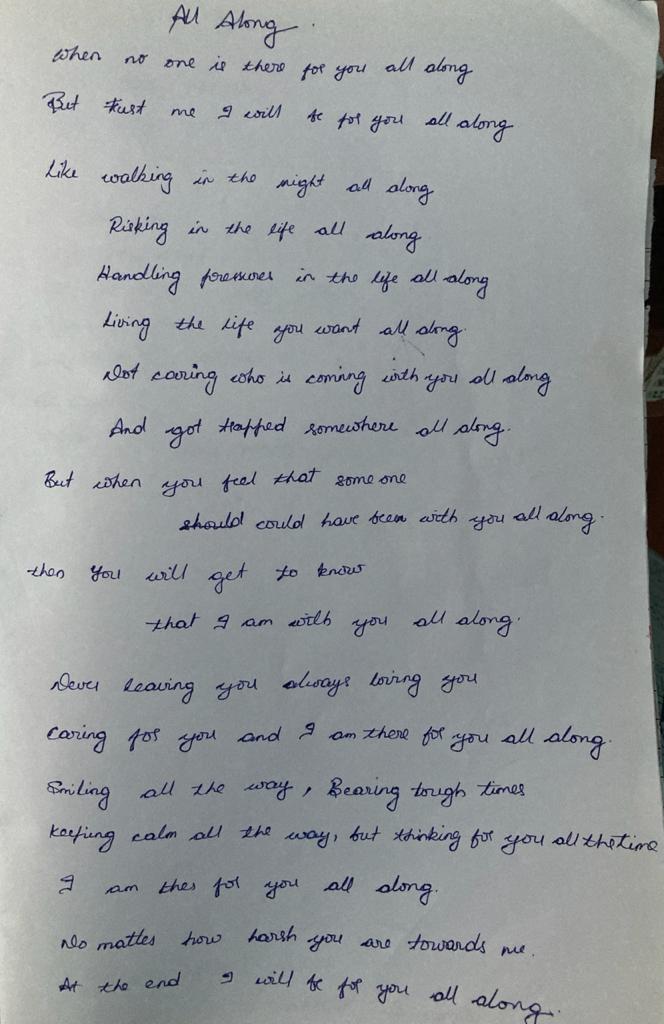 All Along.
When no one is there for you all along
But trust me I will be for you all along
Like walking in the night all along
Risking in the life all along
Handling pressures in the life all along
Living the life you want all along.
Not caring who is coming with you all along
And got trapped somewhere all along.
But when you feel that some one
should could have been with you all along.
then you will get to know
that I am with you all along.
Never leaving you always loving you
Caring for you and I am there for you all along.
Smiling all the way, Bearing tough times
Keeping calm all the way, but thinking for you all the time
I am ther for you all along.
No matter how harsh you are towards me.
At the end I will be for you all along.